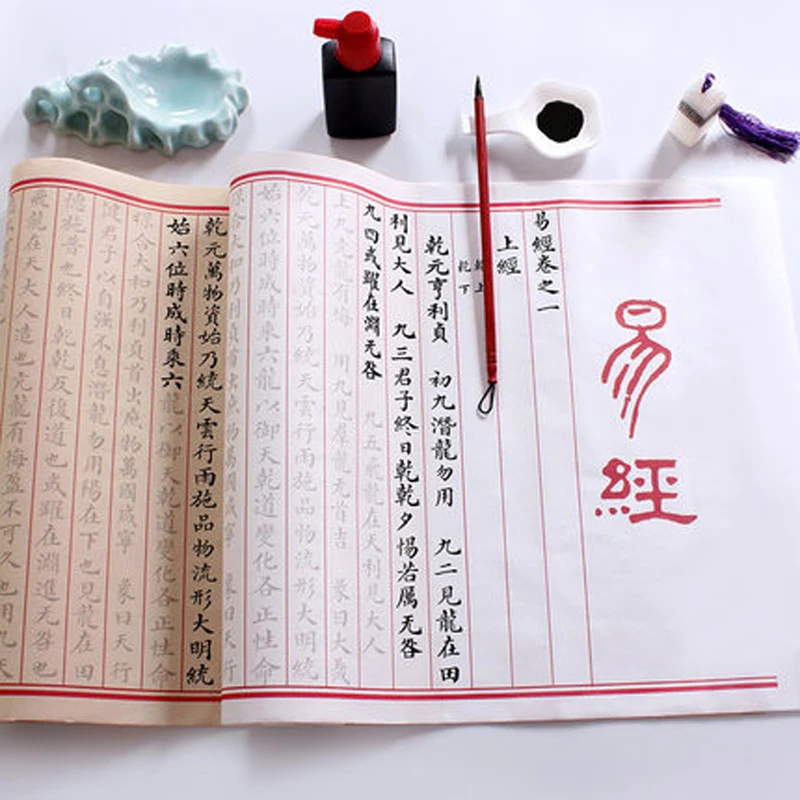 易經
易經卷之一
上經
乾上
乾下
乾元亨利貞　初九潛龍勿用　九二見龍在田
利見大人　九三君子終日乾乾夕惕若厲无咎
九四或躍在淵无咎　九五飛龍在天利見大人
上九亢龍有悔　用九見羣龍无首吉　彖曰大哉
乾元萬物資始乃統天雲行雨施品物流形大明統
始六位時成時乘六龍以御天乾道變化各正性命
乾元萬物資始乃統天雲行雨施品物流形大明統
始六位時成時乘六龍以御天乾道變化各正性命
保合大和乃利貞首出庶物萬國咸寧　象曰天行
健君子以自强不息潛龍勿用陽在下也見龍在田
德施普也終日乾乾反復道也或躍在淵進无咎也
飛龍在天大人造也亢龍有悔盈不可久也用九天